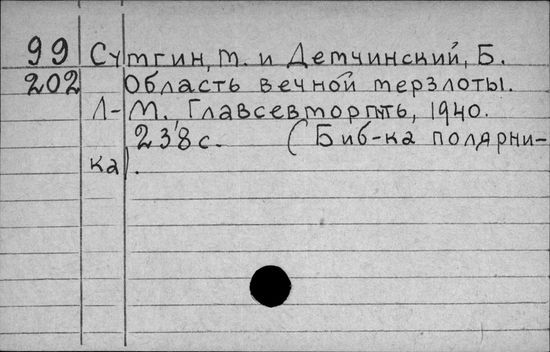 99 Сутгин, т. и Детчинский, Б.
202 Область вечной мерзлоты.
Л-М., Главсевморпуть, 1940.
238 с. (Биб-ка полярни-
ка).